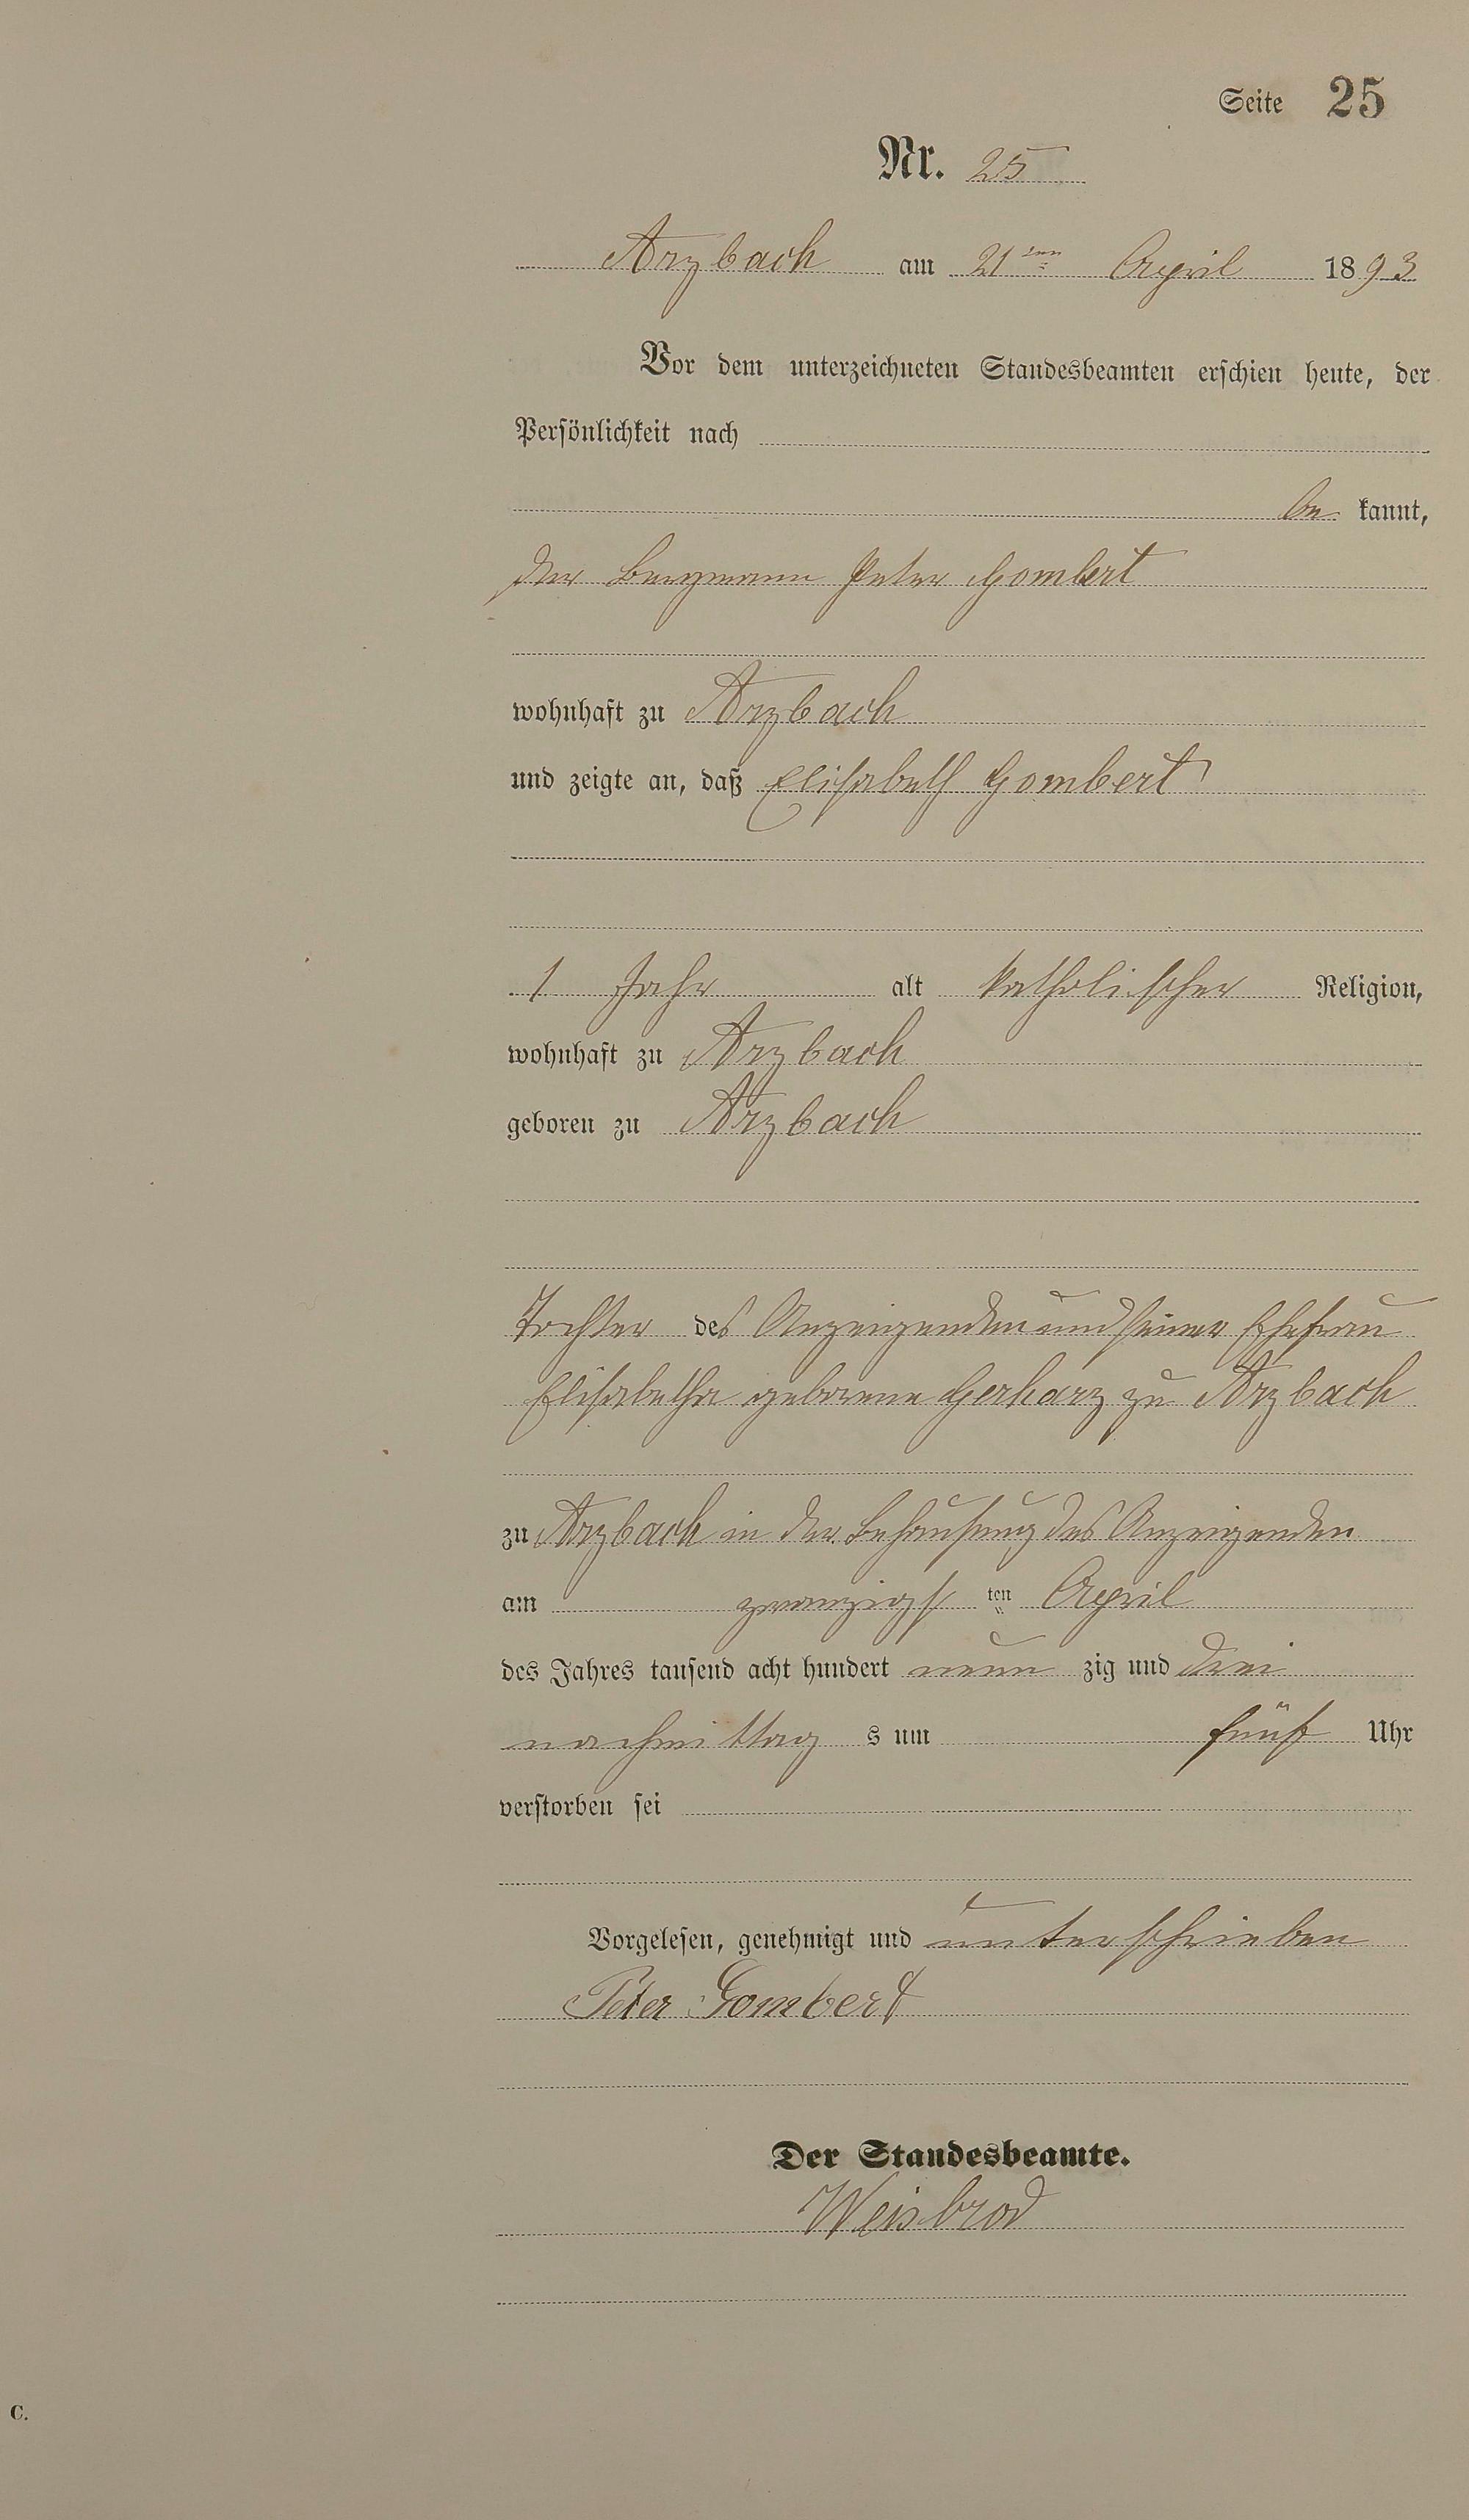 Seite 25
Nr. 25
Arzbach am 21ten April 1893
Vor dem unterzeichneten Standesbeamten erschien heute, der
Persönlichkeit nach
be kannt,
der Bergmann Peter Gombert
wohnhaft zu Arzbach
und zeigte an, daß Elisabeth Gombert
1 Jahr alt katholischer Religion,
wohnhaft zu Arzbach
geboren zu Arzbach
Tochter des Anzeigenden und seiner Ehefrau
Elisabetha geborene Gerharz zu Arzbach
zu Arzbach in der Behausung des Anzeigenden
am zwanzigst ten April
des Jahres tausend acht hundert neun zig und drei
nachmittag s um fünf Uhr
verstorben sei
Vorgelesen, genehmigt und unterschrieben
Peter Gombert
Der Standesbeamte.
Weisbrod
C.